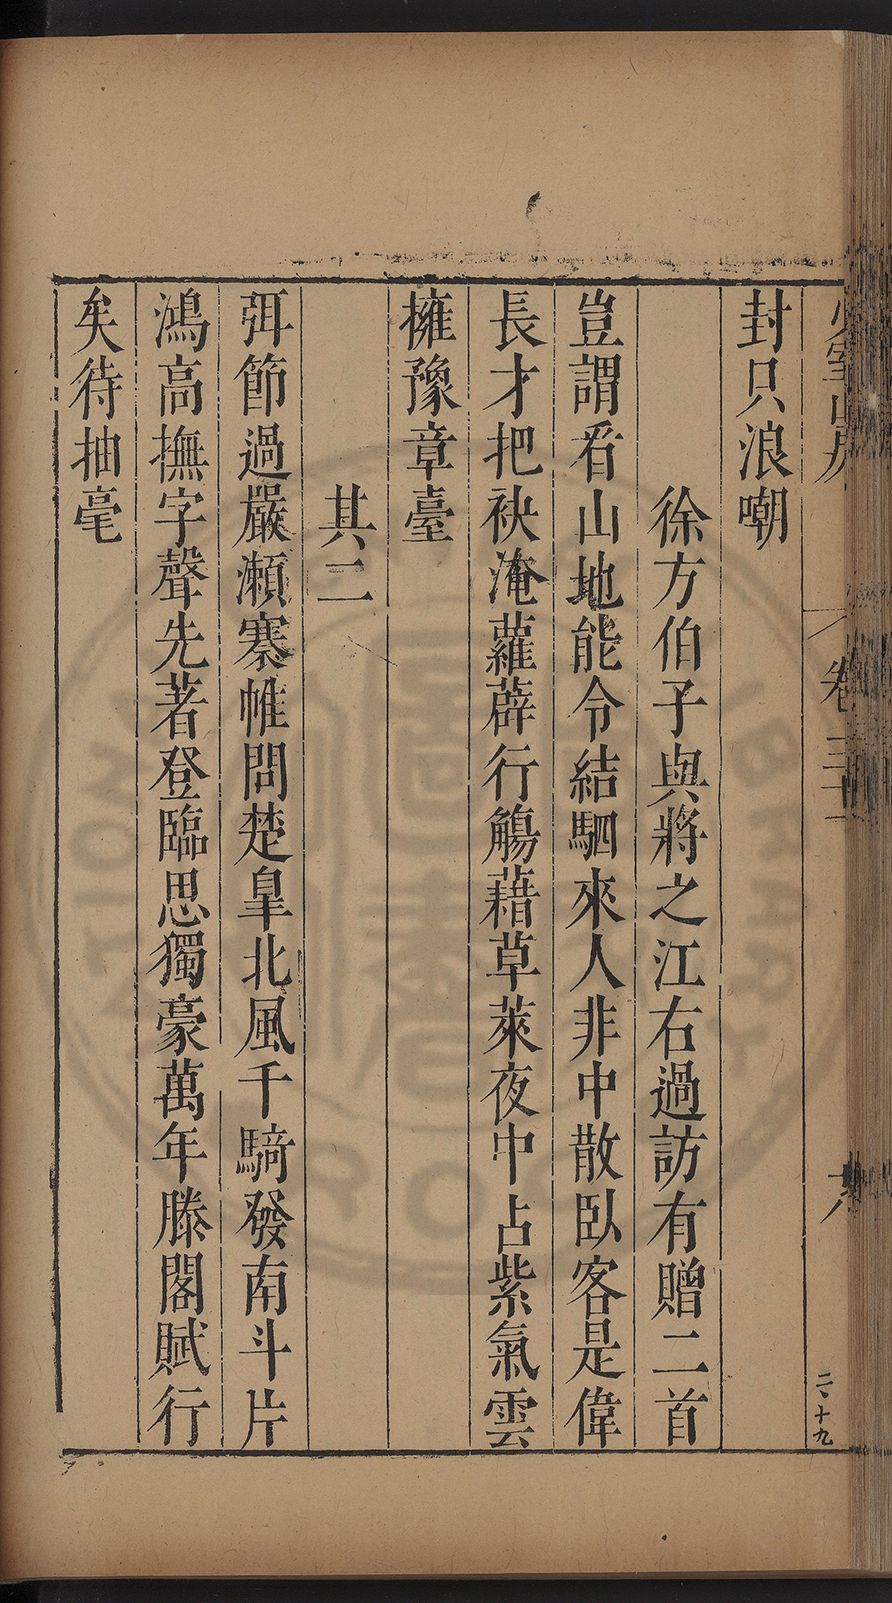 少室山房 卷三十 六 二、十九
封只浪嘲
徐方伯子與將之江右過訪有贈二首
豈謂看山地能令結駟來人非中散臥客是偉
長才把袂淹蘿薜行觴藉草萊夜中占紫氣雲
擁豫章臺
其二
弭節過嚴瀨褰帷問楚皐北風千騎發南斗片
鴻高撫字聲先著登臨思獨豪萬年滕閣賦行
矣待抽毫